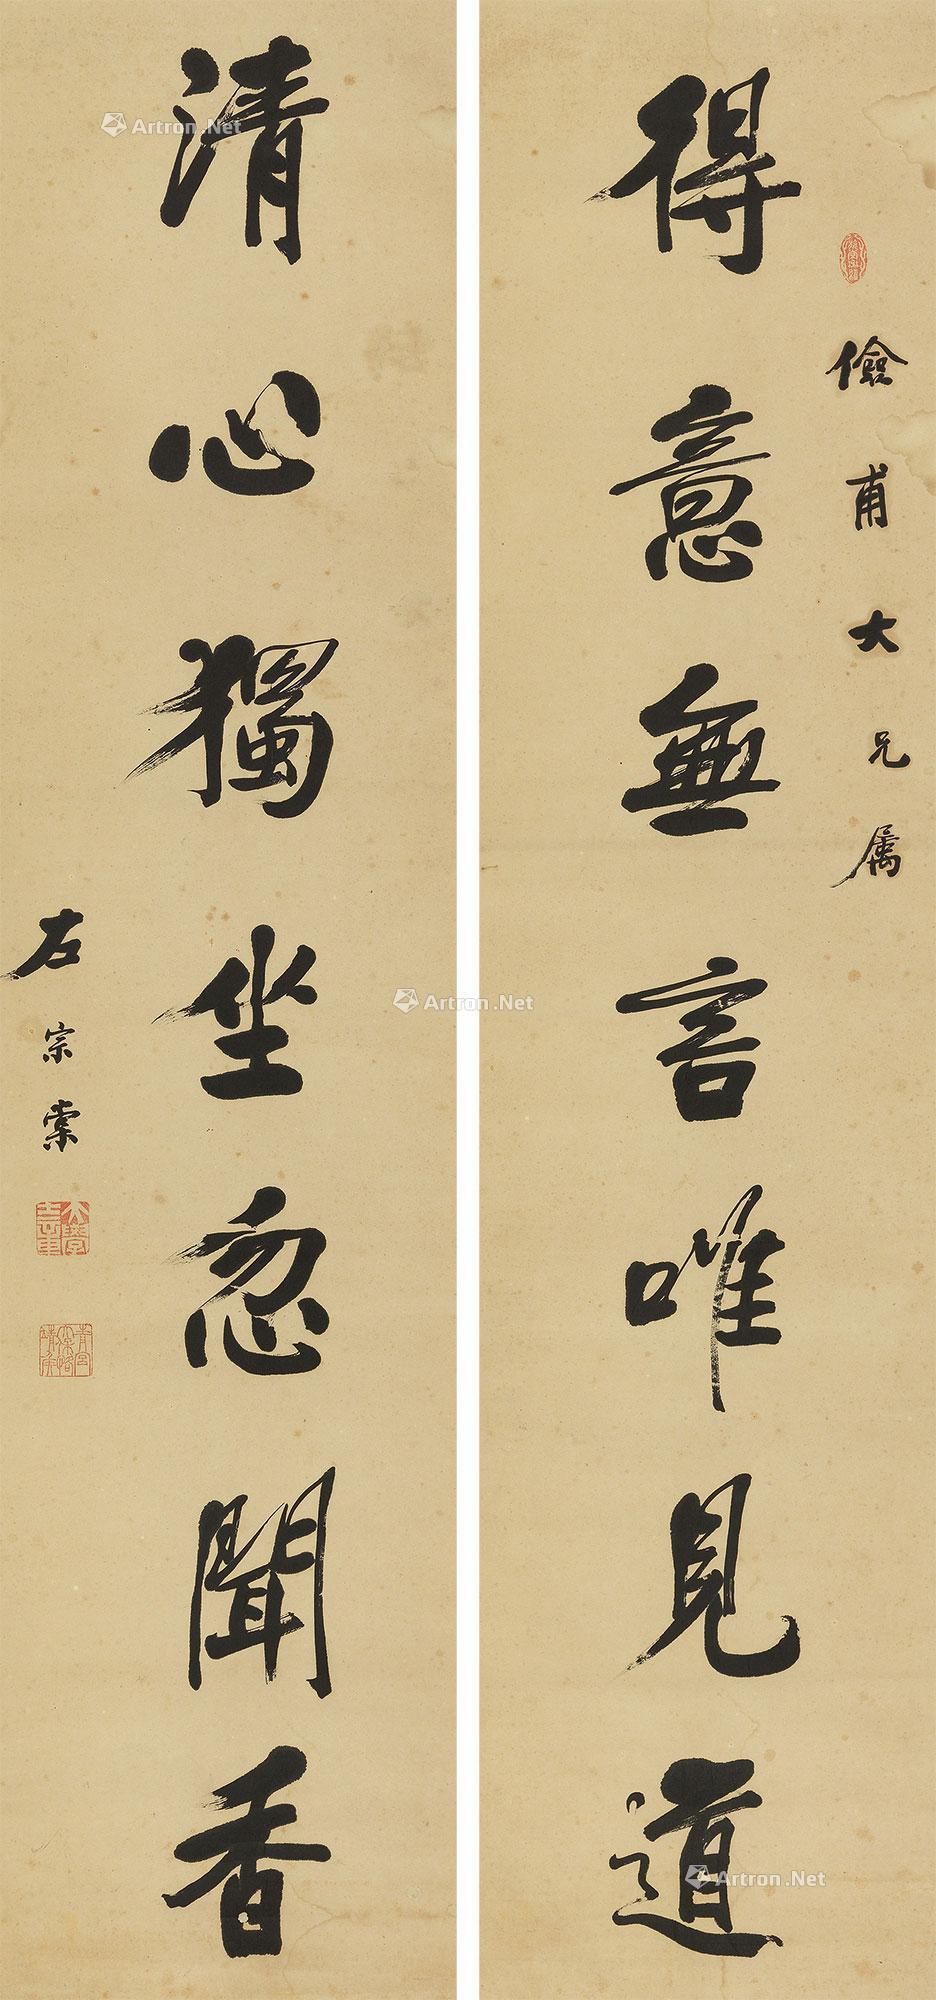 儉甫大兄属
得意無言唯見道
清心獨坐忽聞香
左宗棠
Artron.Net
Artron.Net
Artron.Net